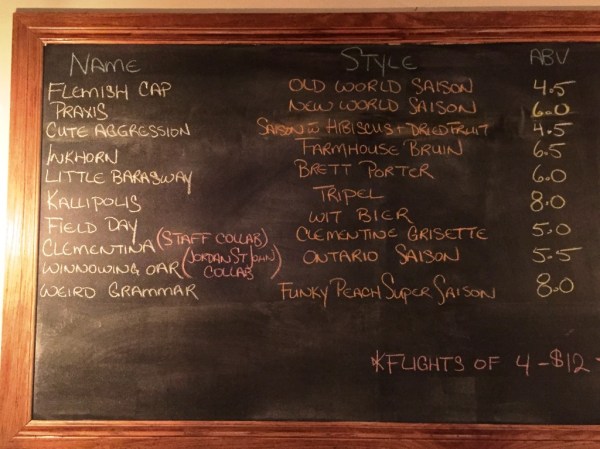 NAME STYLE ABV
FLEMISH CAP OLD WORLD SAISON 4.5
PRAXIS NEW WORLD SAISON 6.0
CUTE AGGRESSION SAISON W HIBISCUS + DRIED FRUIT 4.5
INKHORN FARMHOUSE BRUIN 6.5
LITTLE BARASWAY BRETT PORTER 6.0
KALLIPOLIS TRIPEL 8.0
FIELD DAY WIT BIER
CLEMENTINA (STAFF COLLAB) CLEMENTINE GRISETTE 5.0
WINNOWING OAR (JORDAN ST JOHN COLLAB) ONTARIO SAISON 5.5
WEIRD GRAMMAR FUNKY PEACH SUPER SAISON 8.0
*FLIGHTS OF 4 - $12 -